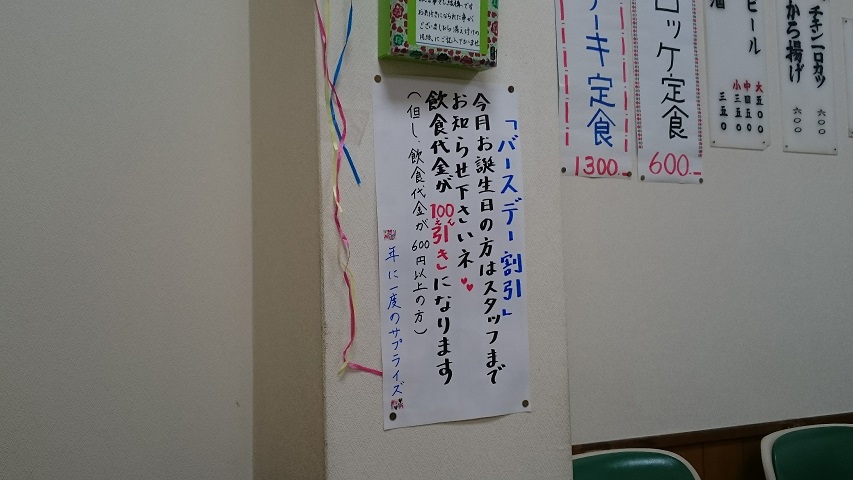 「バースデー割引」
今月お誕生日の方はスタッフまで
お知らせ下さいネ
飲食代金が100引き」になります
えん
(但し、飲食代金が600円以上の方)
年に一度のサプライズ
ロッケ定食
600.-
ーキ定食
1300.-
チキン一口カツ
から揚げ
六〇〇
六〇〇
ビール
大五〇〇
中四五〇
小三五〇
酒
三五〇